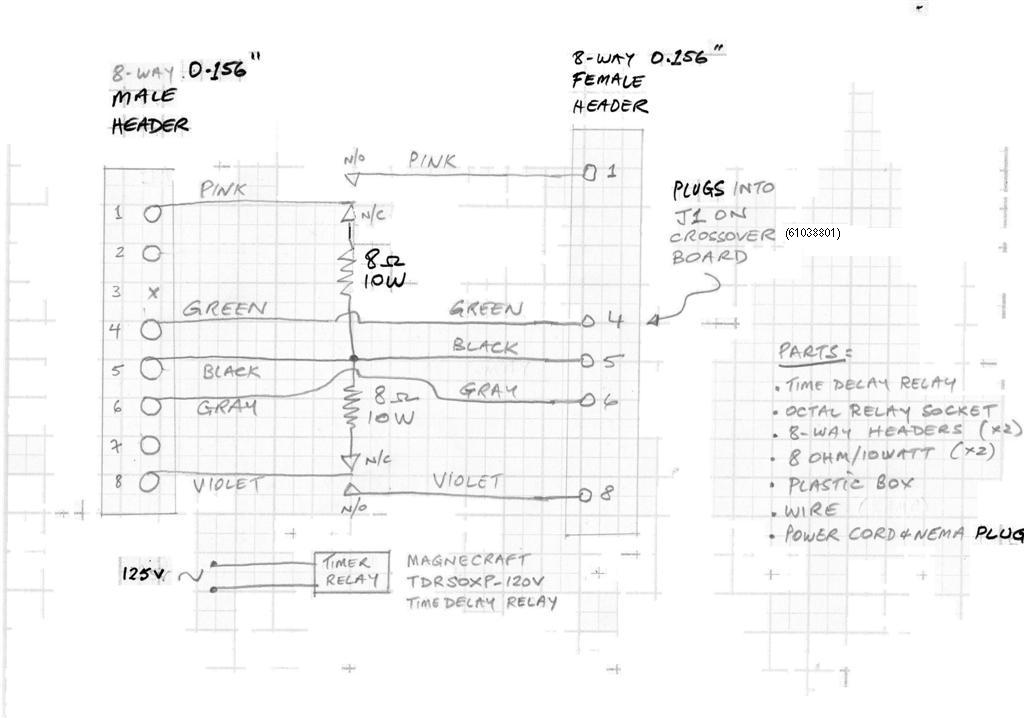 8-WAY 0.156"
MALE
HEADER
8-WAY 0.156"
FEMALE
HEADER
N/O
PINK
1
PINK
1
N/C
PLUGS INTO
J1 ON
CROSSOVER (61038801)
BOARD
2
8Ω
10W
3
GREEN
GREEN
4
4
BLACK
5
BLACK
5
GRAY
6
GRAY
6
8Ω
10W
7
N/C
8
VIOLET
VIOLET
8
N/O
PARTS:
• TIME DELAY RELAY
• OCTAL RELAY SOCKET
• 8-WAY HEADERS (x2)
• 8 OHM/10WATT (x2)
• PLASTIC BOX
• WIRE
• POWER CORD & NEMA PLUG
125V
TIMER
RELAY
MAGNECRAFT
TDRSOXP-120V
TIME DELAY RELAY